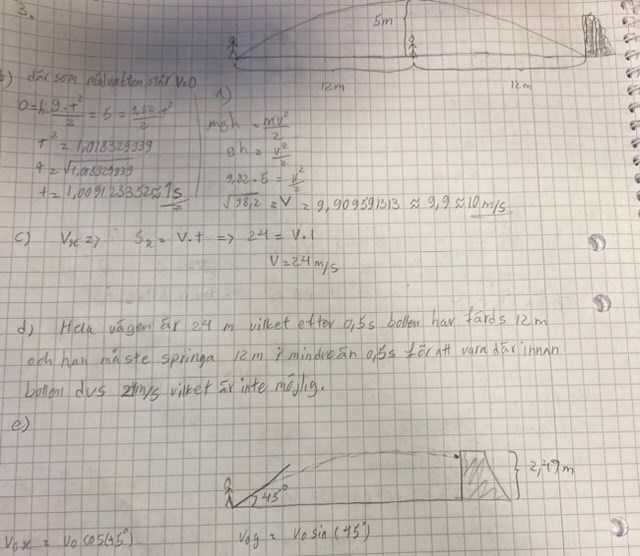 3.
5m
12m
12m
b) där som målvakten står V=0
0=h g·t²/2 = 5 = 9,82·t²/2
t² = 1,018329939
t = √1,018329939
t = 1,009123352 ≈ 1s
a)
mgh = mv²/2
gh = v²/2
9,82·5 = v²/2
√98,2 = V = 9,909591313 ≈ 9,9 ≈ 10 m/s
c) Vx => Sx = V·t => 24 = V·1
V = 24 m/s
d) Hela vägen är 24 m vilket efter 0,5s bollen har färds 12m
och han måste springa 12m i mindre än 0,5s för att vara där innan
bollen dvs 24m/s vilket är inte möjlig.
e)
45°
2,49m
V0x = V0 cos(45°)
V0y = V0 sin(45°)